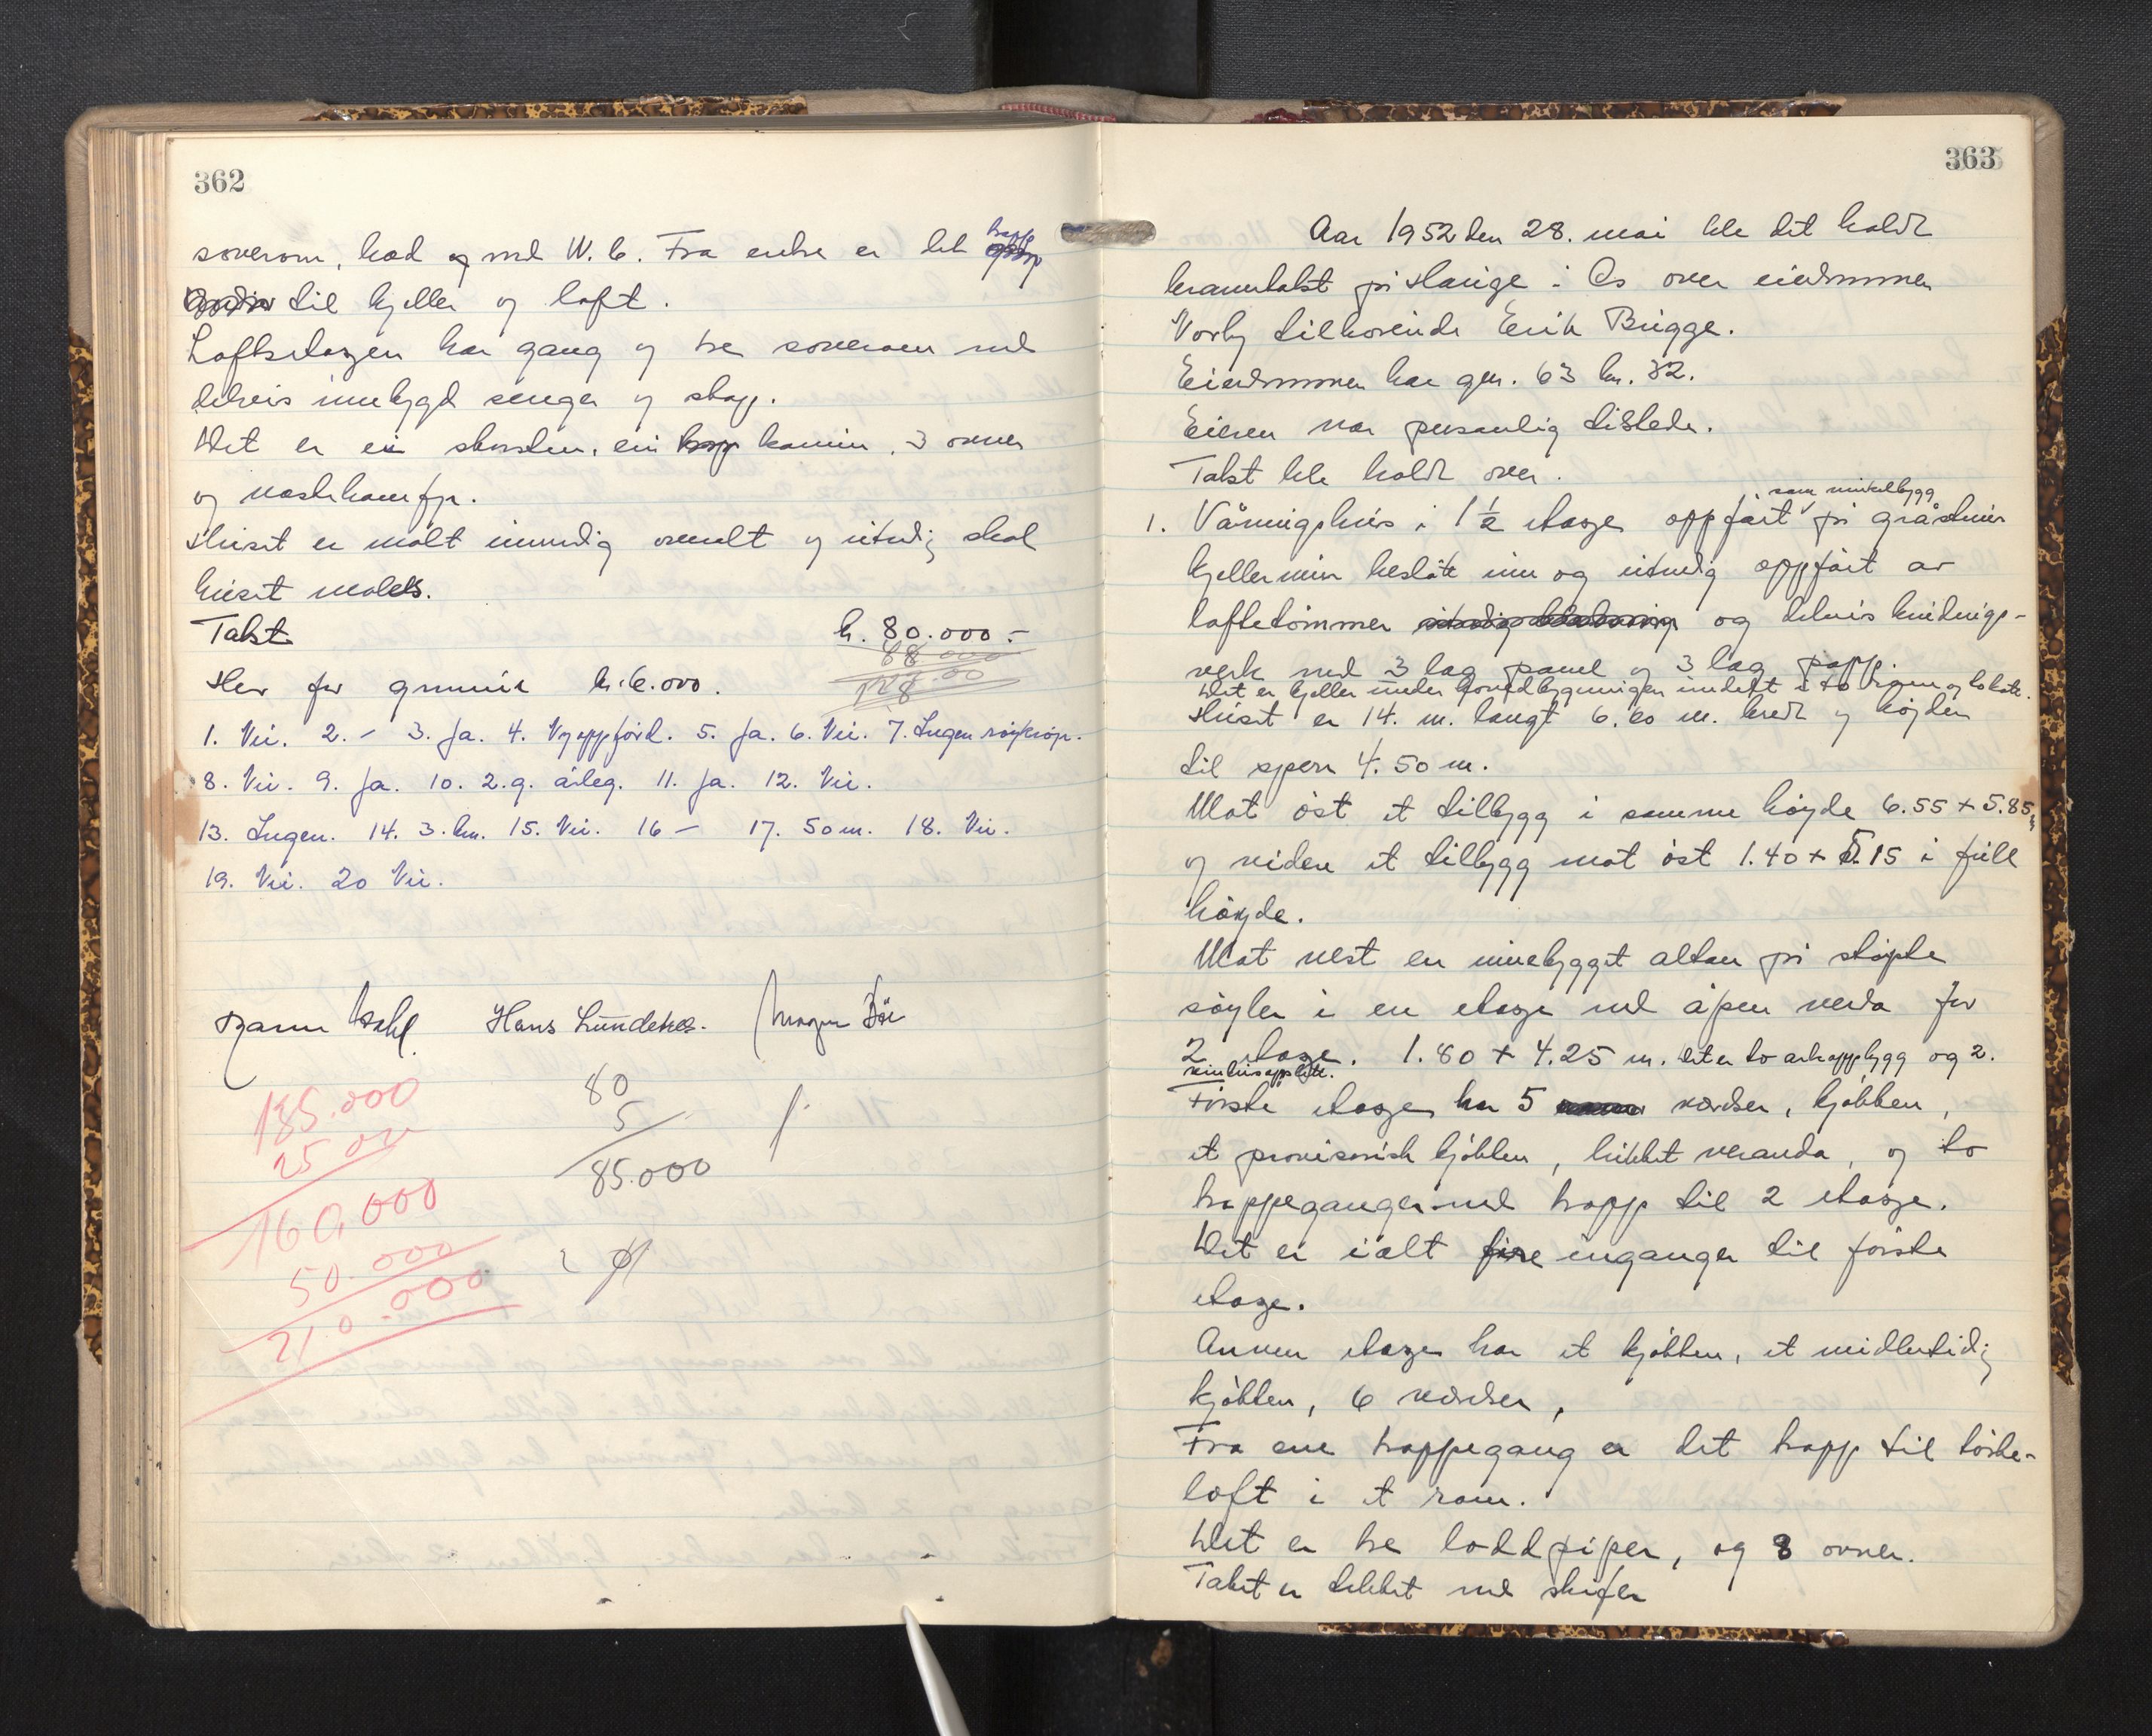 362
soverom, bad og med W.C. Fra entre er det trapp
til kjeller og loft.
Loftsetagen har gang og tre soverom med
delvis innbygd senger og skap.
Det er ei skorsten, ein kamin, 3 ovner
og vaskekamfyr.
Huset er målt innvendig overalt og utvendig skal
huset males.
Takst kr. 80.000.-
88.000
Herav for grunnen kr. 6.000.
1. Nei. 2. - 3. Ja. 4. Nyoppförd. 5. Ja. 6. Nei. 7. Ingen
8. Nei. 9. Ja. 10. 2.g. årleg. 11. Ja. 12. Nei.
13. Ingen. 14. 3. km. 15. Nei. 16 - 17. 50 m. 18. Nei.
19. Nei. 20 Nei.
Hans
185.000
25.000
160.000
50.000
210.000
80
5
85.000
363
Aar 1952 den 28. mai ble det holdt
branntakst på Hauge i Os over eiendommen
Norby tilhørende Erik Brigge.
Eiendommen har gnr. 63 bnr. 32.
Eieren var personlig tilstede.
Takst ble holdt over.
som vinkelbygg
1. Våningshus i 1½ etasje oppfört på gråsteins
kjellermur beslått inn og utvendig oppfört av
laftetömmer og delvis bindings-
verk med 3 lag panel og 3 lag papp.
Det er kjeller under hovedbygningen inndelt i to rom og to boder.
Huset er 14. m. langt 6.60 m. bredt og höyden
til sperr 4.50 m.
Mot öst et tilbygg i samme höyde 6.55 + 5.85
og videre et tilbygg mot öst 1.40 + 5.15 i full
höyde.
Mot vest en innebygget altan på stöpte
söyler i en etasje med åpen veranda for
2 etasje. 1.80 + 4.25 m. Det er to arkoppbygg og 2.
vindusopplett.
Förste etasje har 5 værelser, kjökken,
et provisorisk kjökken, lukket veranda, og to
trappeganger med trapp til 2 etasje.
Det er ialt fire innganger til förste
etasje.
Annen etasje har et kjökken, et midlertidig
kjökken, 6 værelser,
Fra ene trappegang er det trapp til törke-
loft i et rom.
Det er tre loddpiper, og 8 ovner.
Taket er dekket med skifer